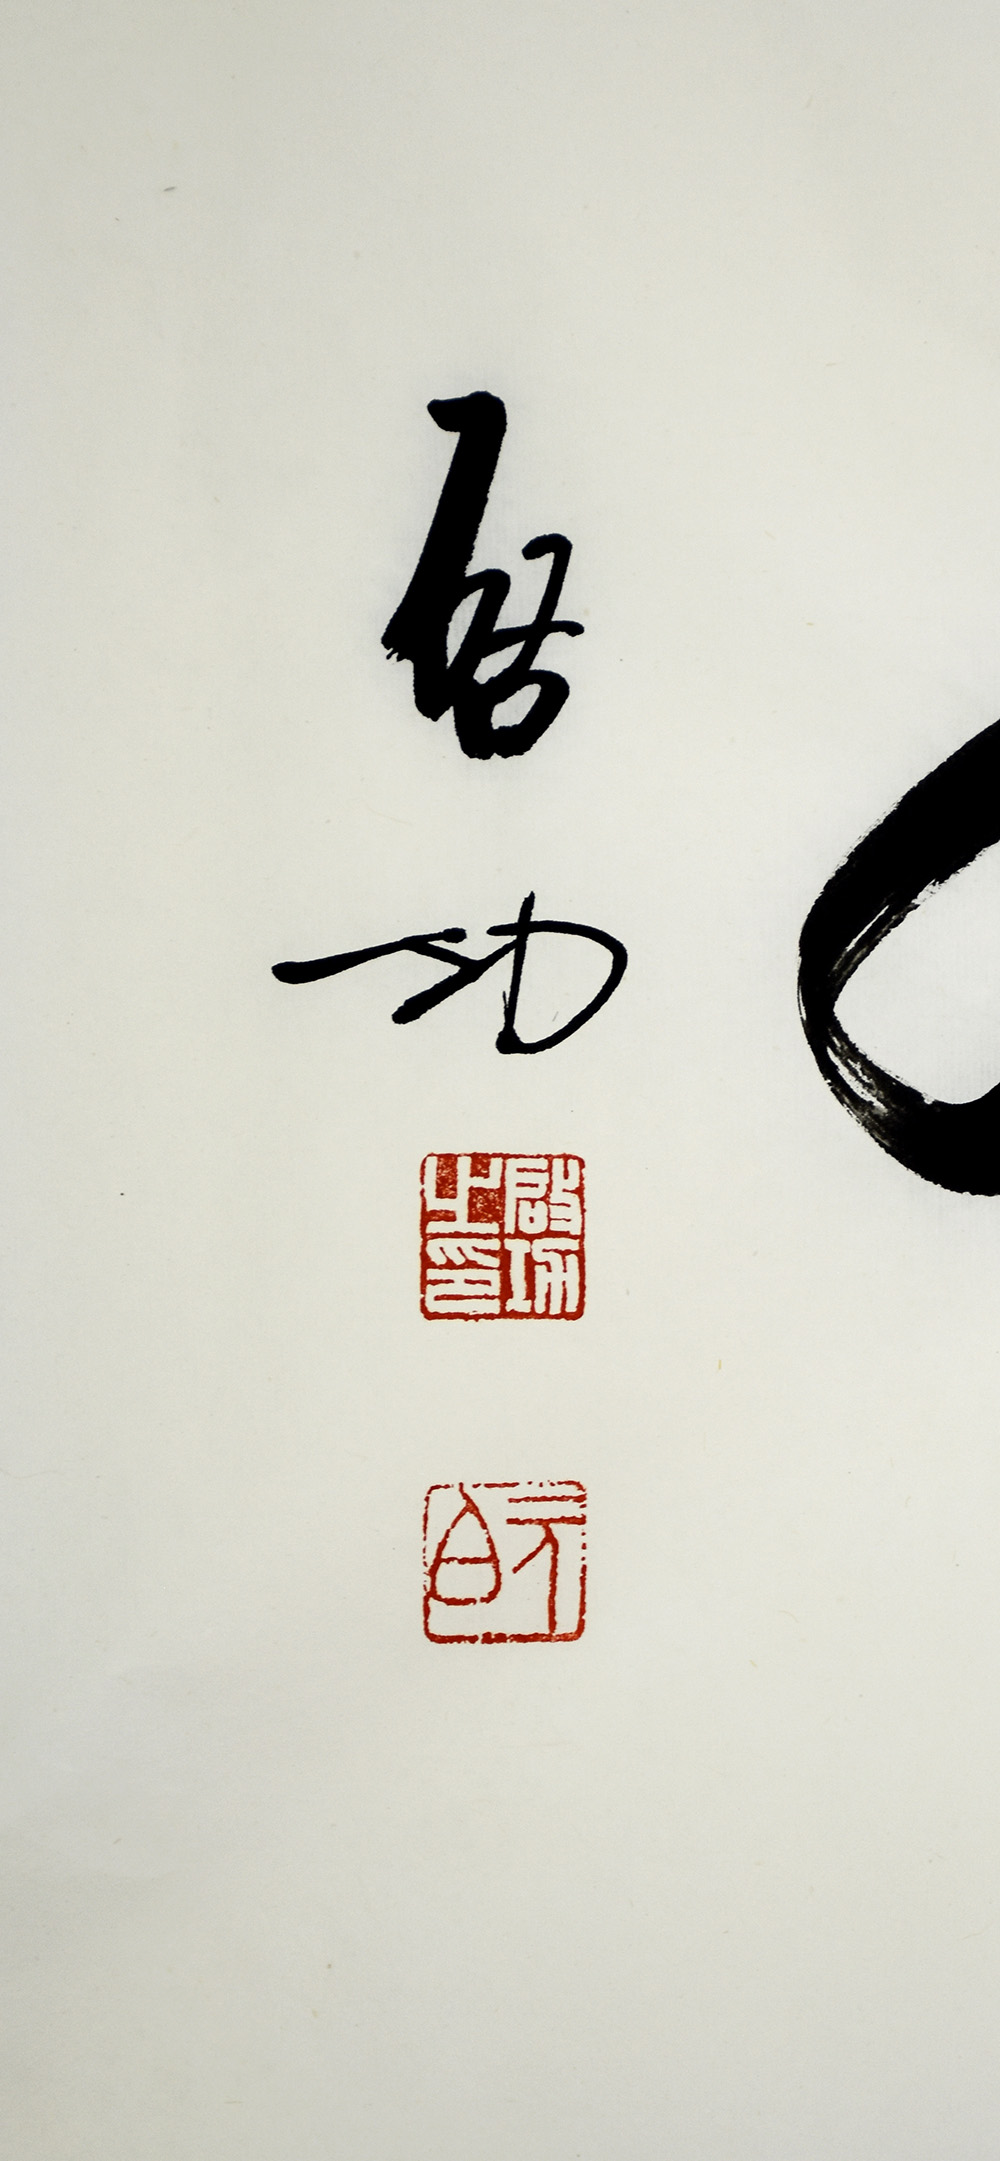 启功
启功之印
元白